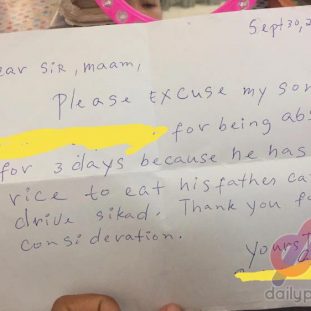 Sept 30, 2
ear Sir, maam,
Please Excuse my son
for being abs
for 3 days because he has
rice to eat his father ca
drive sikad. Thank you fo
consideration.
Yours T
dailyp